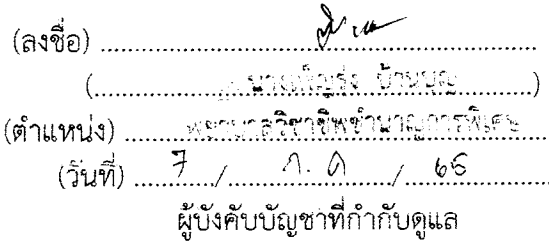 (ลงชื่อ) ..........................................
(............นางเพ็ญรุ่ง บ้านบุญ............)
(ตำแหน่ง) ........พยาบาลวิชาชีพชำนาญการพิเศษ
(วันที่) ....7..../....ก.ค..../....65....
ผู้บังคับบัญชาที่กำกับดูแล